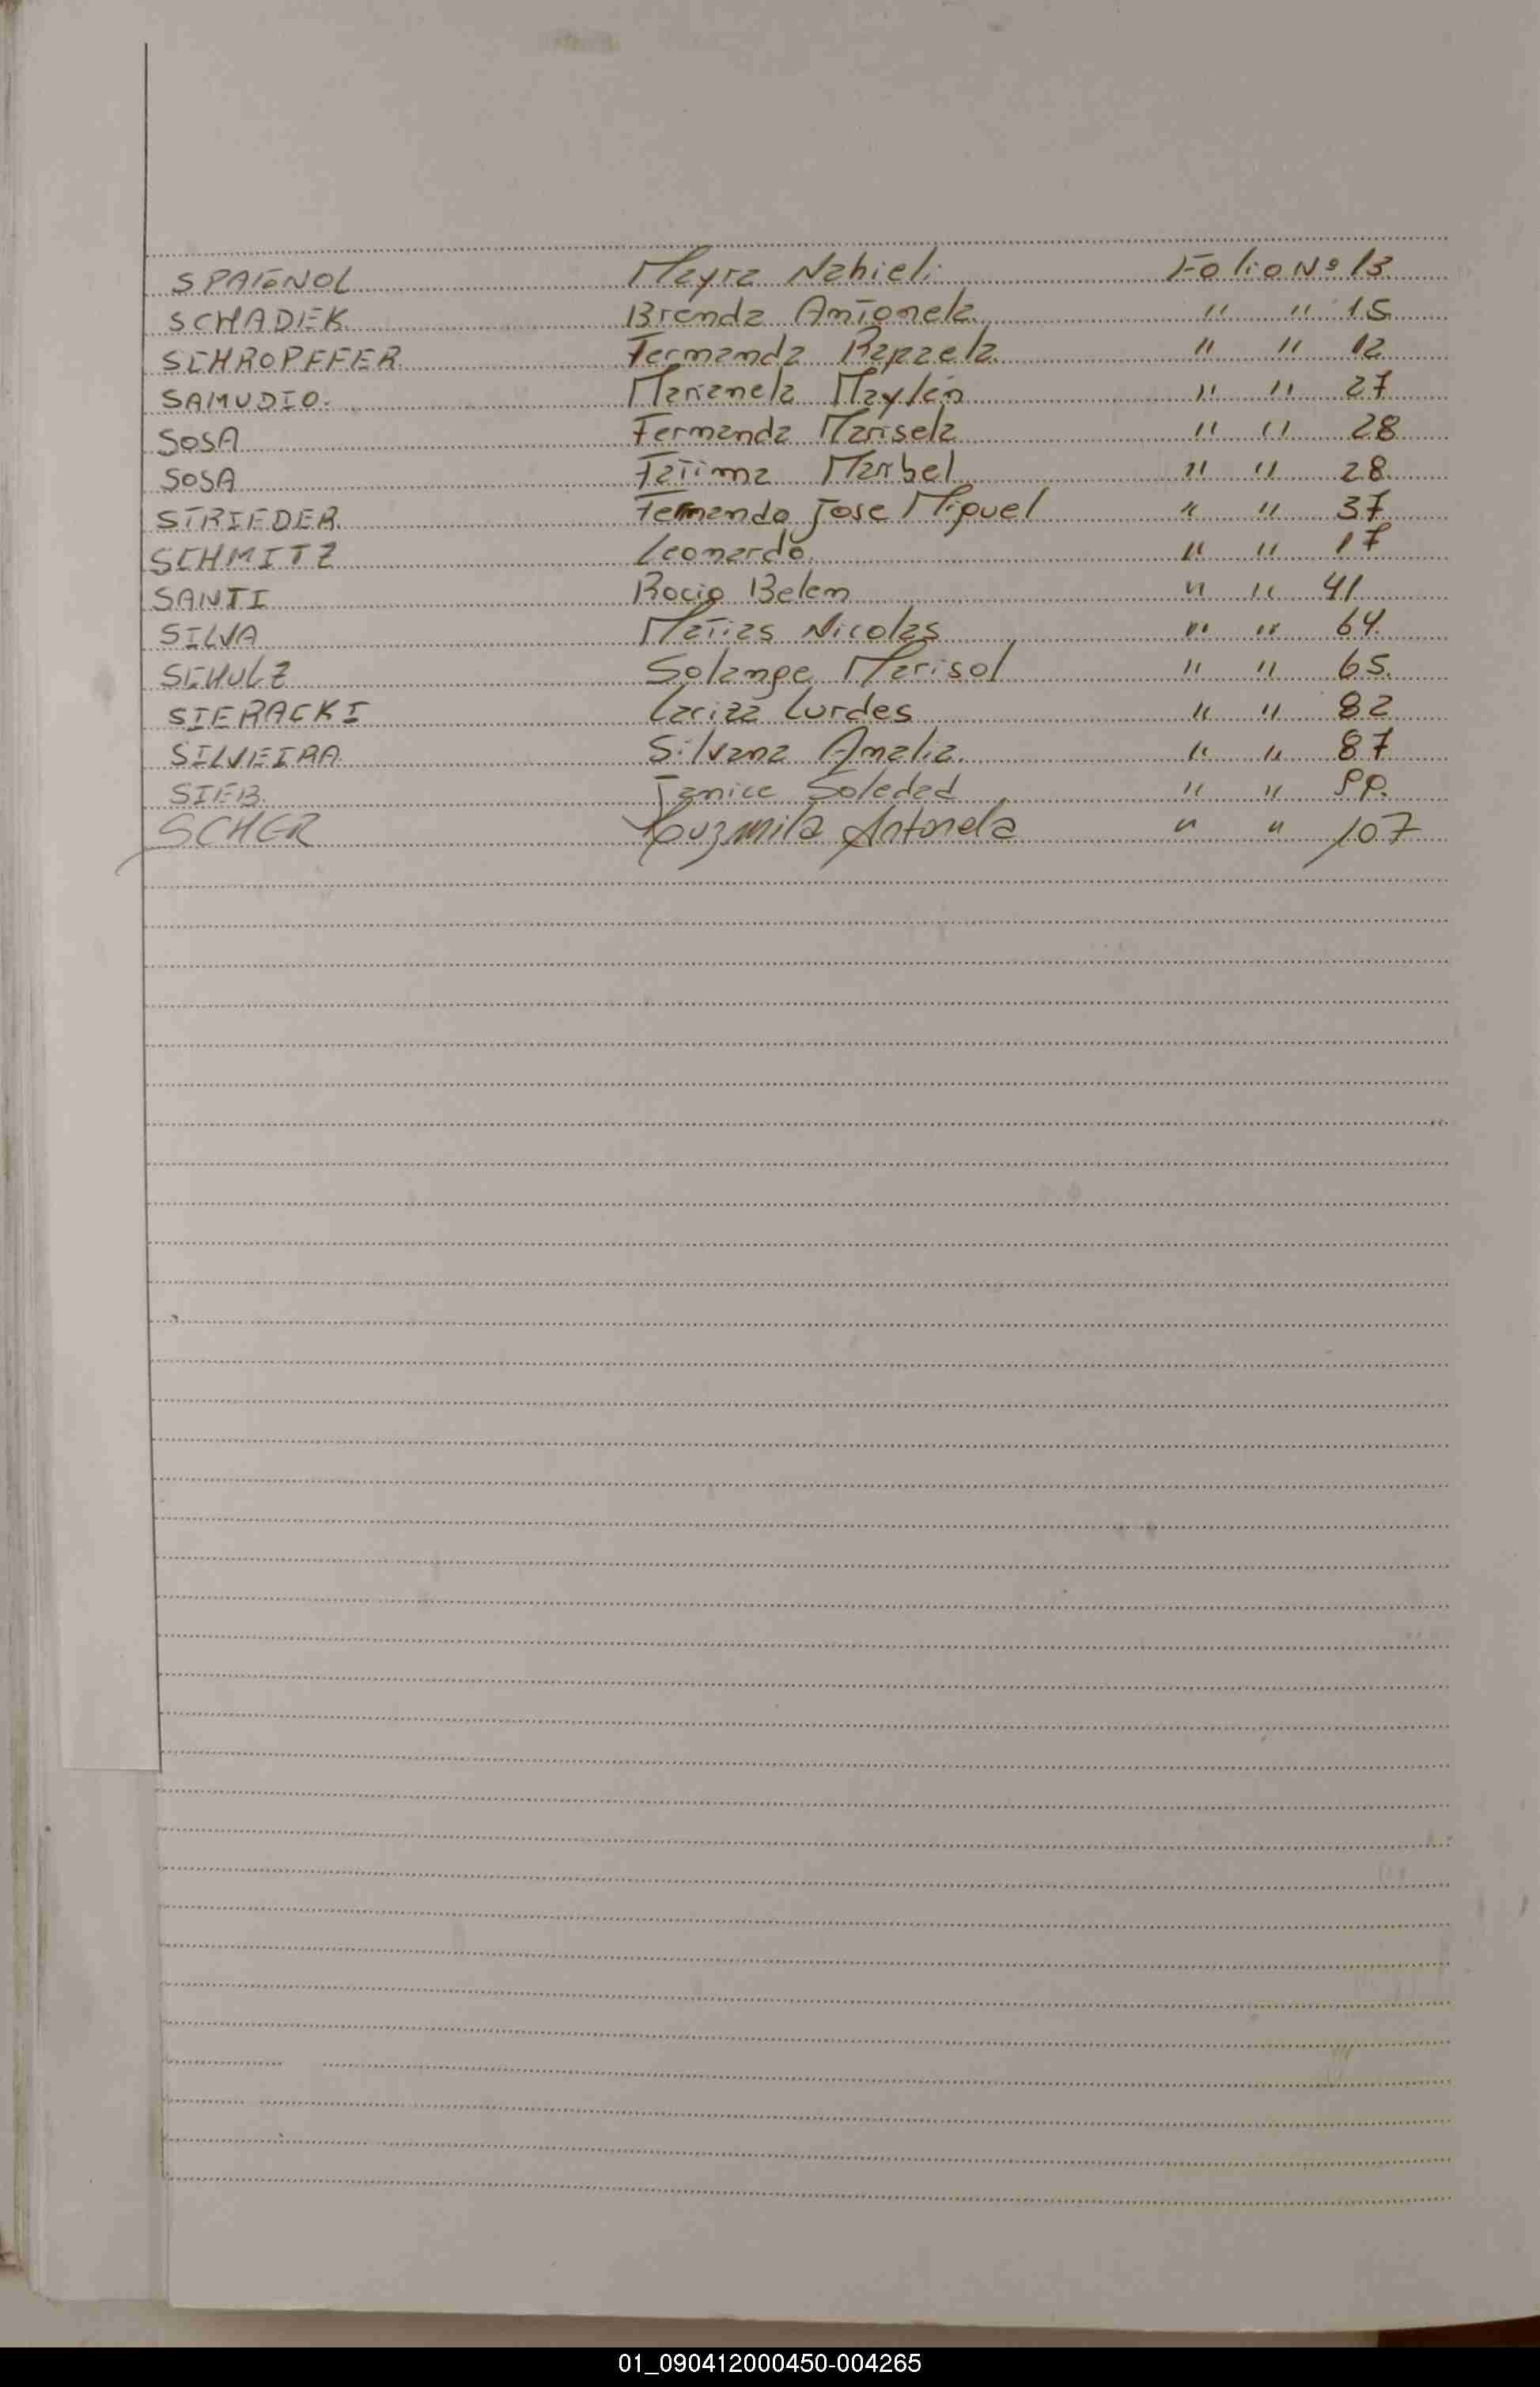 SPAGNOL Mayra Nahieli Folio Nº 13
SCHADEK Brenda Antonela " " 15
SCHROPFFER Fernanda Rafaela " " 12
SAMUDIO. Marianela Maylén " " 27
SOSA Fernanda Marisela " " 28
SOSA Fatima Maribel " " 28
STRIEDER Fernando Jose Miguel " " 37
SCHMITZ Leonardo. " " 17
SANTI Rocio Belen " " 41
SILVA Matias Nicolas " " 64.
SCHULZ Solange Marisol " " 65.
SIERACKI Lariza Lurdes " " 82
SILVEIRA Silvana Amalia. " " 87
SIEB. Janice Soledad " " 99.
SCHER Luzmila Antonela " " 107
01_090412000450-004265